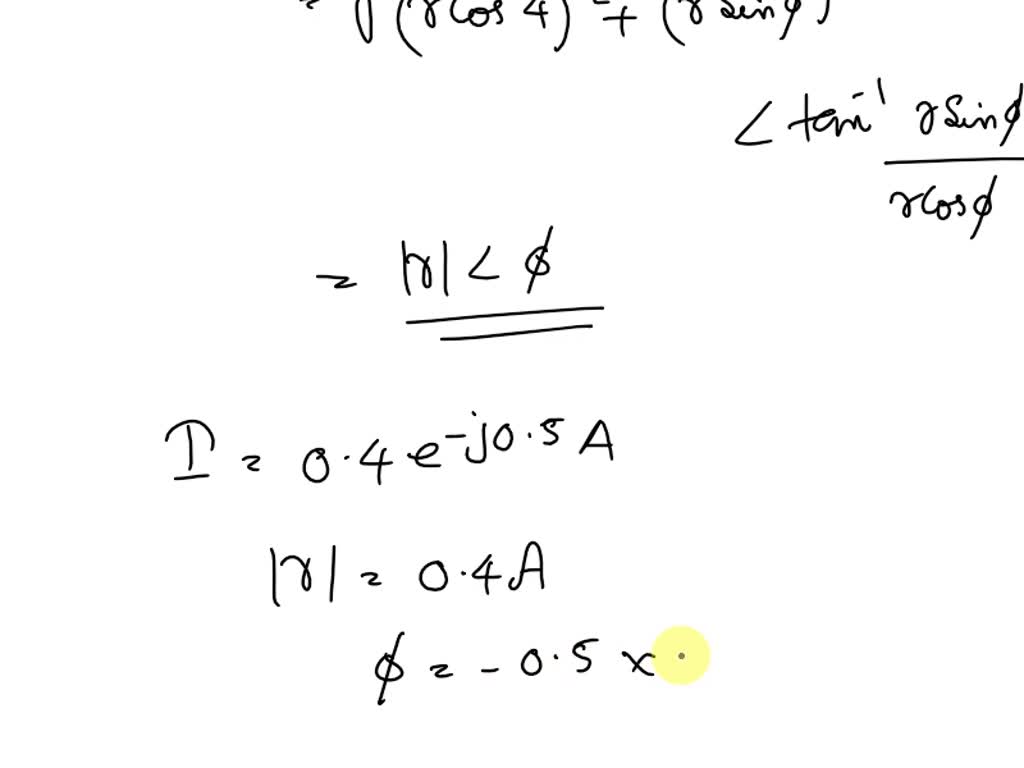 = √(r cos φ)² + (r sin φ)
∠ tan⁻¹ r sin φ / r cos φ
= |r| ∠ φ
I = 0.4 e^-j0.5 A
|r| = 0.4 A
φ = - 0.5 ×